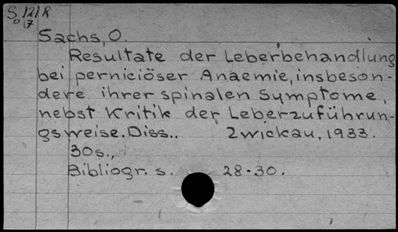 S 121 R
o 7
Sachs, O.
Resultate der Leberbehandlung
bei perniciöser Anaemie, insbeson-
dere ihrer spinalen Symptome,
nebst Kritik der Leberzuführun-
gsweise. Diss.. Zwickau, 1933.
30s.,
Bibliogr. s. 28-30.